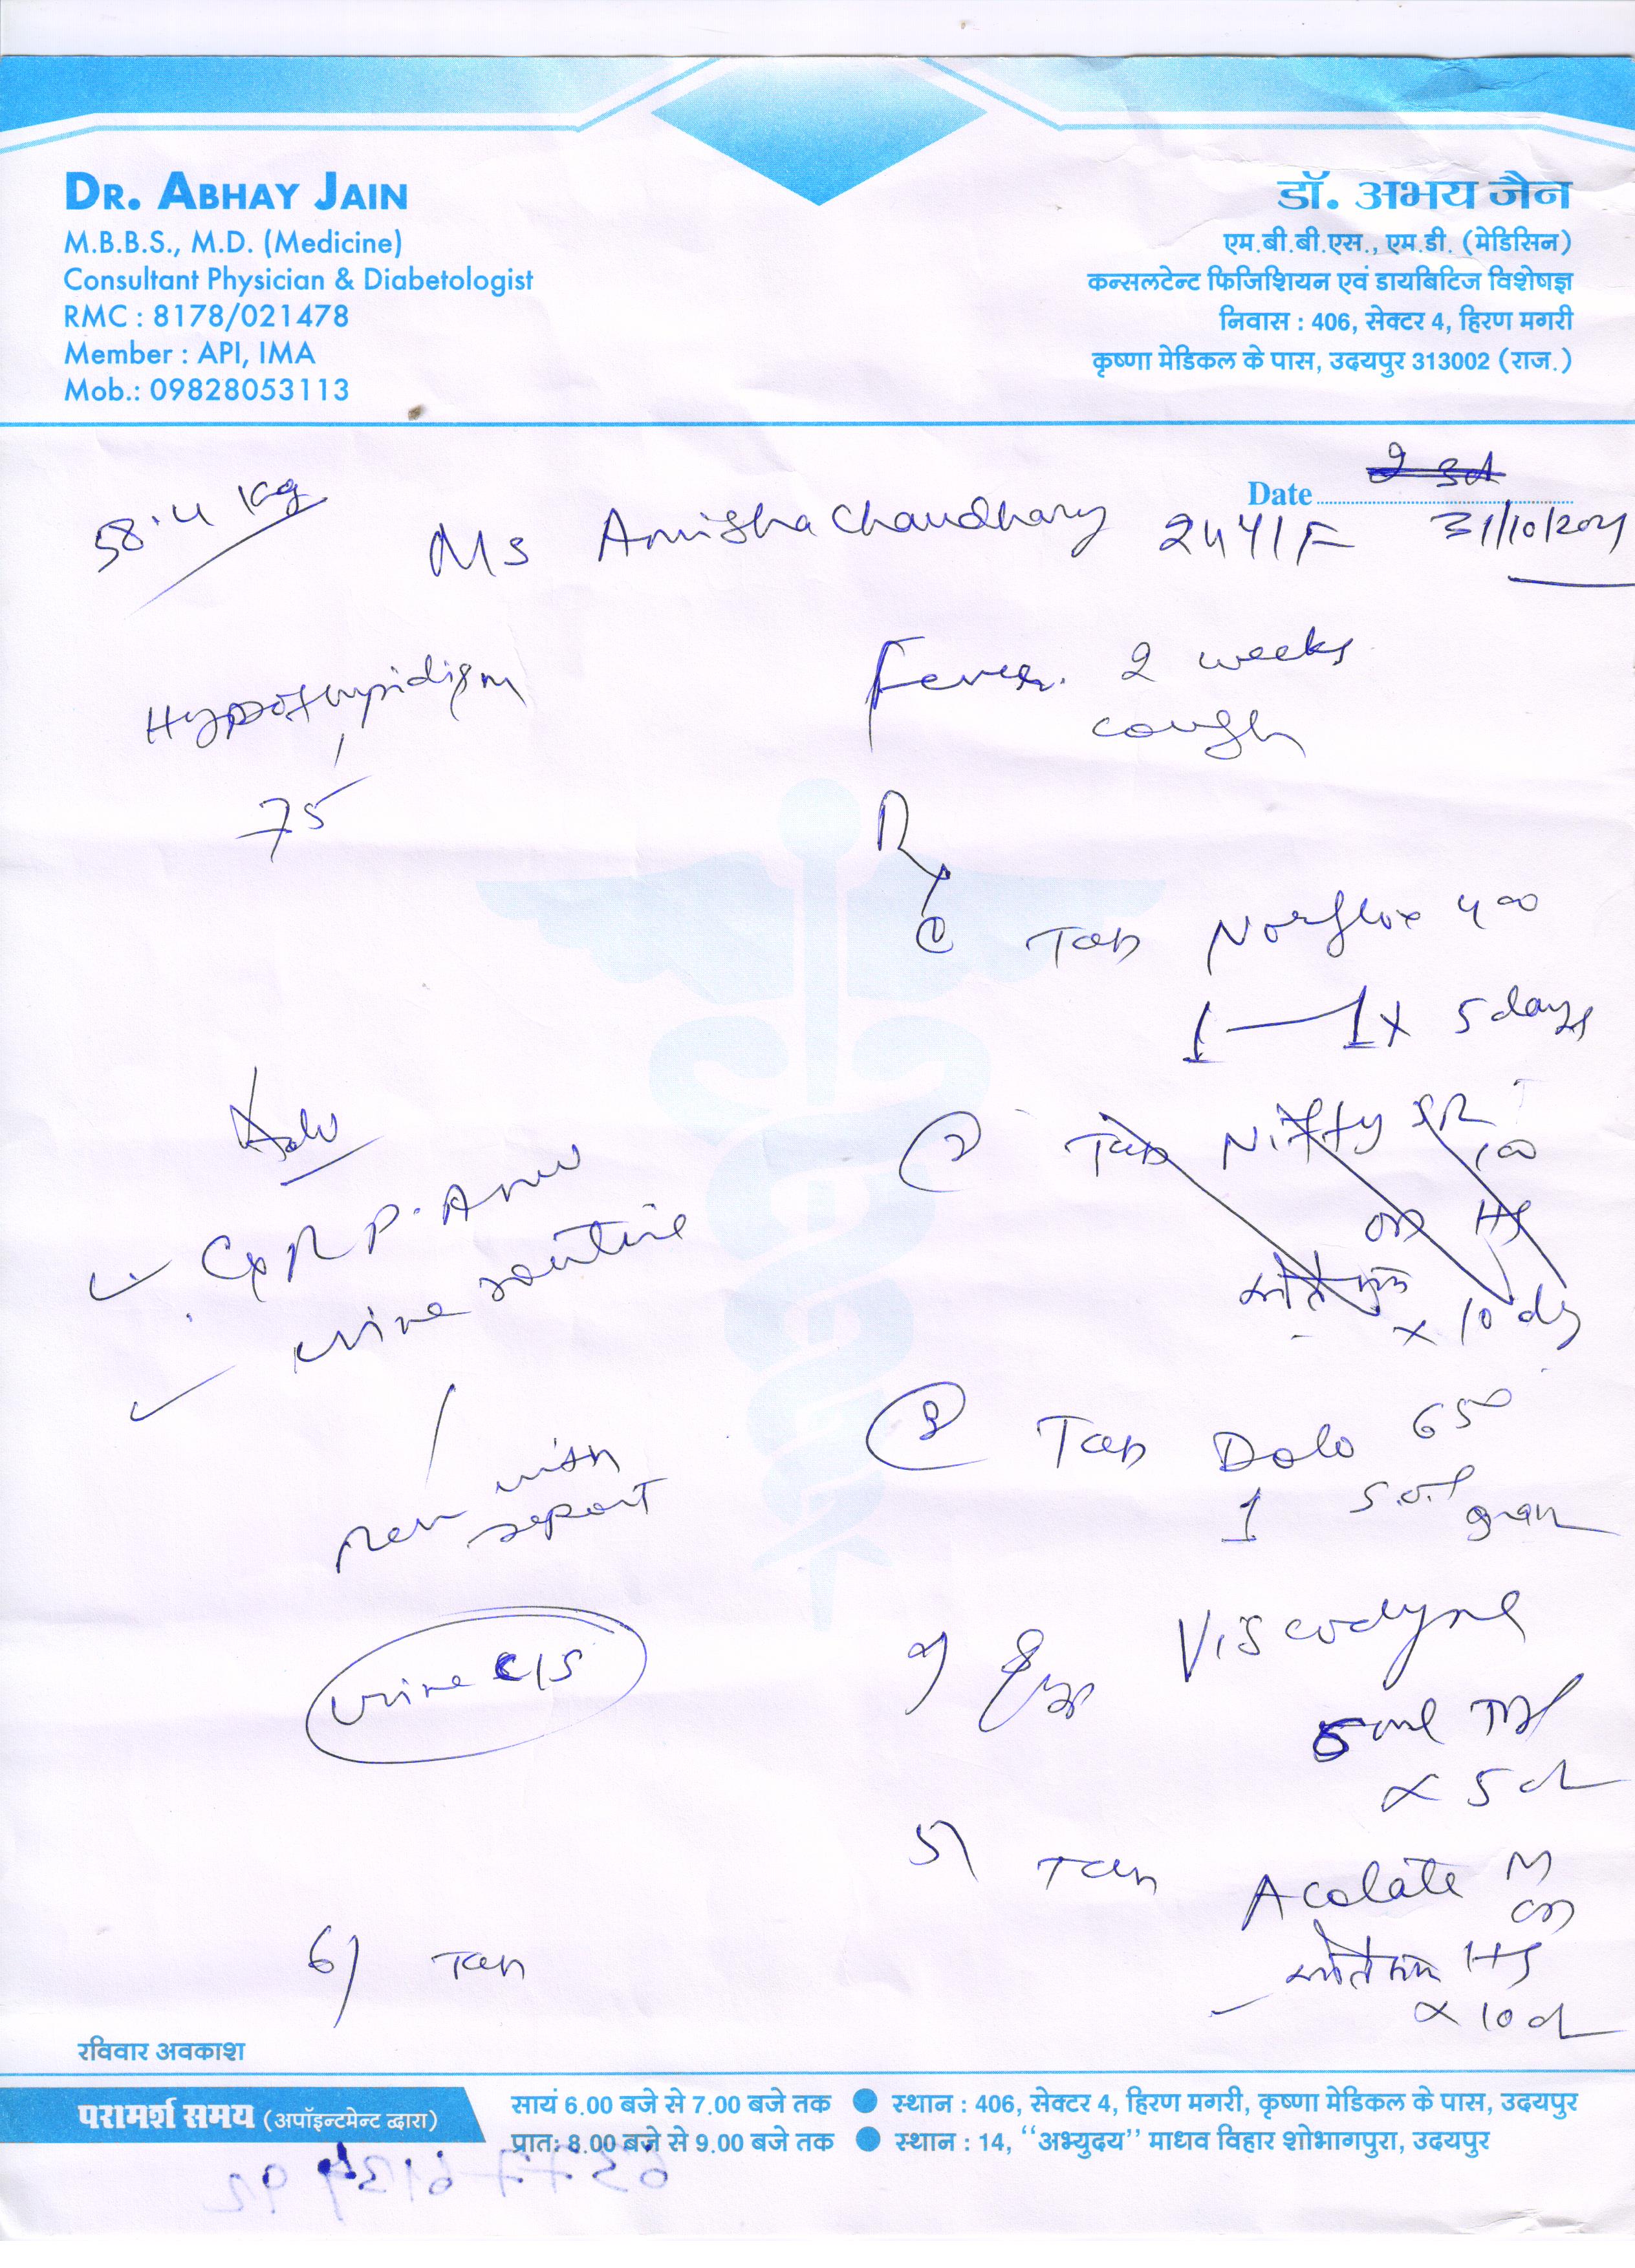 DR. ABHAY JAIN
M.B.B.S., M.D. (Medicine)
Consultant Physician & Diabetologist
RMC : 8178/021478
Member : API, IMA
Mob.: 09828053113
डॉ. अभय जैन
एम.बी.बी.एस., एम.डी. (मेडिसिन)
कन्सलटेन्ट फिजिशियन एवं डायबिटिज विशेषज्ञ
निवास : 406, सेक्टर 4, हिरण मगरी
कृष्णा मेडिकल के पास, उदयपुर 313002 (राज.)
Date
58.4 Kg
Ms Anisha Chaudhary 24Y/F 31/10/2021
Hypothyroidism
75
Fever. 2 weeks
cough
Rx
① Tab Norflox 400
1—1 x 5 days
② Tab Nifty SR 100
HS
x 10 dy
③ Tab Dolo 650
1 S.O.S
④ Syp Viscodyne
5 ml TDS
x 5 d
5) Tab Acolate M
सोते समय HS
x 10 d
Adv
CxR P.A view
urine routine
with
report
urine C/S
6) Tab
रविवार अवकाश
परामर्श समय (अपॉइन्टमेन्ट द्वारा)
सायं 6.00 बजे से 7.00 बजे तक ● स्थान : 406, सेक्टर 4, हिरण मगरी, कृष्णा मेडिकल के पास, उदयपुर
प्रात: 8.00 बजे से 9.00 बजे तक ● स्थान : 14, ‘‘अभ्युदय’’ माधव विहार शोभागपुरा, उदयपुर